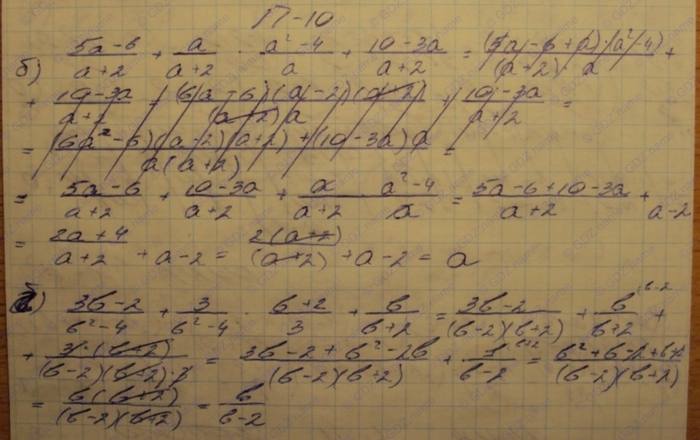 П-10
б) (5a-6)/(a+2) + a/(a+2) · (a²-4)/a + (10-3a)/(a+2) = ((5a-6+a)·(a²-4))/((a+2)·a) +
+ (10-3a)/(a+2) = ((6a-6)(a-2)(a+2))/((a+2)a) + (10-3a)/(a+2) =
= ((6a²-6)(a-2)(a+2)+(10-3a)a)/(a(a+2)) =
= (5a-6)/(a+2) + (10-3a)/(a+2) + a/(a+2) · (a²-4)/a = (5a-6+10-3a)/(a+2) + a-2
= (2a+4)/(a+2) + a-2 = (2(a+2))/((a+2)) + a-2 = a
(3в-2)/(в²-4) + 3/(в²-4) · (в+2)/3 + в/(в+2) = (3в-2)/((в-2)(в+2)) + в/(в+2) (в-2 +
+ (3·(в+2))/((в-2)(в+2)·3) = (3в-2+в²-2в)/((в-2)(в+2)) + 1/(в-2) (в+2 = (в²+в-2+в+2)/((в-2)(в+2))
= (в(в+2))/((в-2)(в+2)) = в/(в-2)